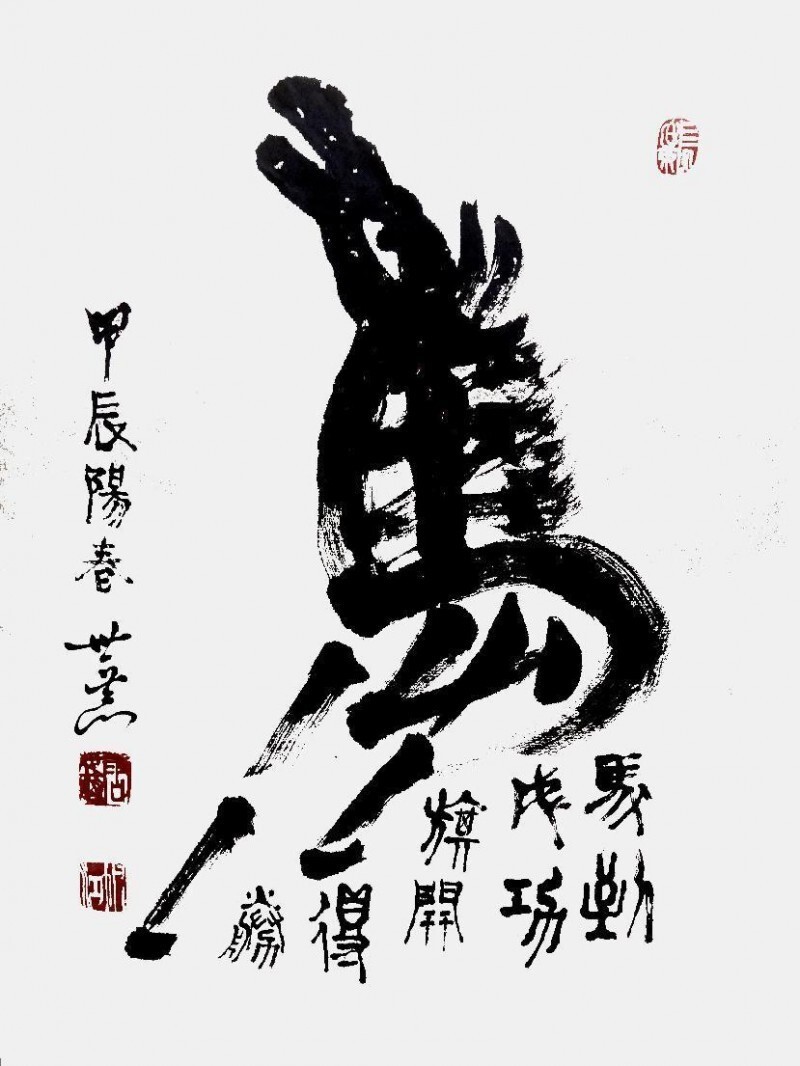 馬
馬到
成功
旗開
得
勝
甲辰陽春 世